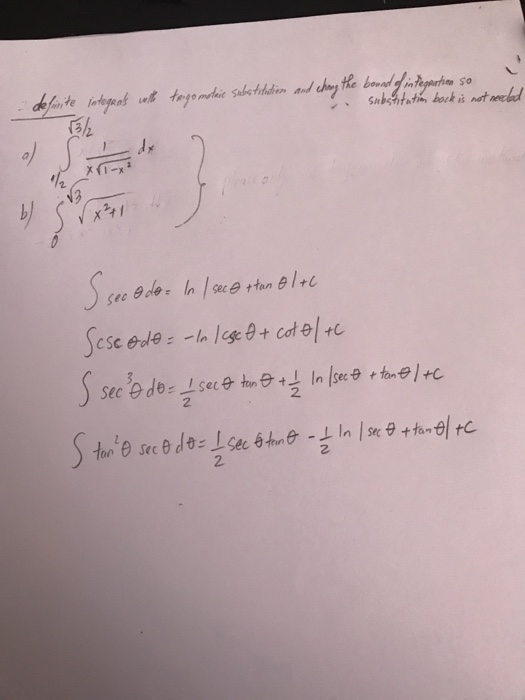 definite integrals with trigometric substitution and chang the bound of integration so
substitution back is not needed
a) ∫_{1/2}^{√3/2} 1/(x√(1-x²)) dx
b) ∫_0^{√3} √(x²+1)
∫ sec θ dθ = ln |sec θ + tan θ| + C
∫ csc θ dθ = -ln |csc θ + cot θ| + C
∫ sec³θ dθ = 1/2 sec θ tan θ + 1/2 ln |sec θ + tan θ| + C
∫ tan²θ sec θ dθ = 1/2 sec θ tan θ - 1/2 ln |sec θ + tan θ| + C